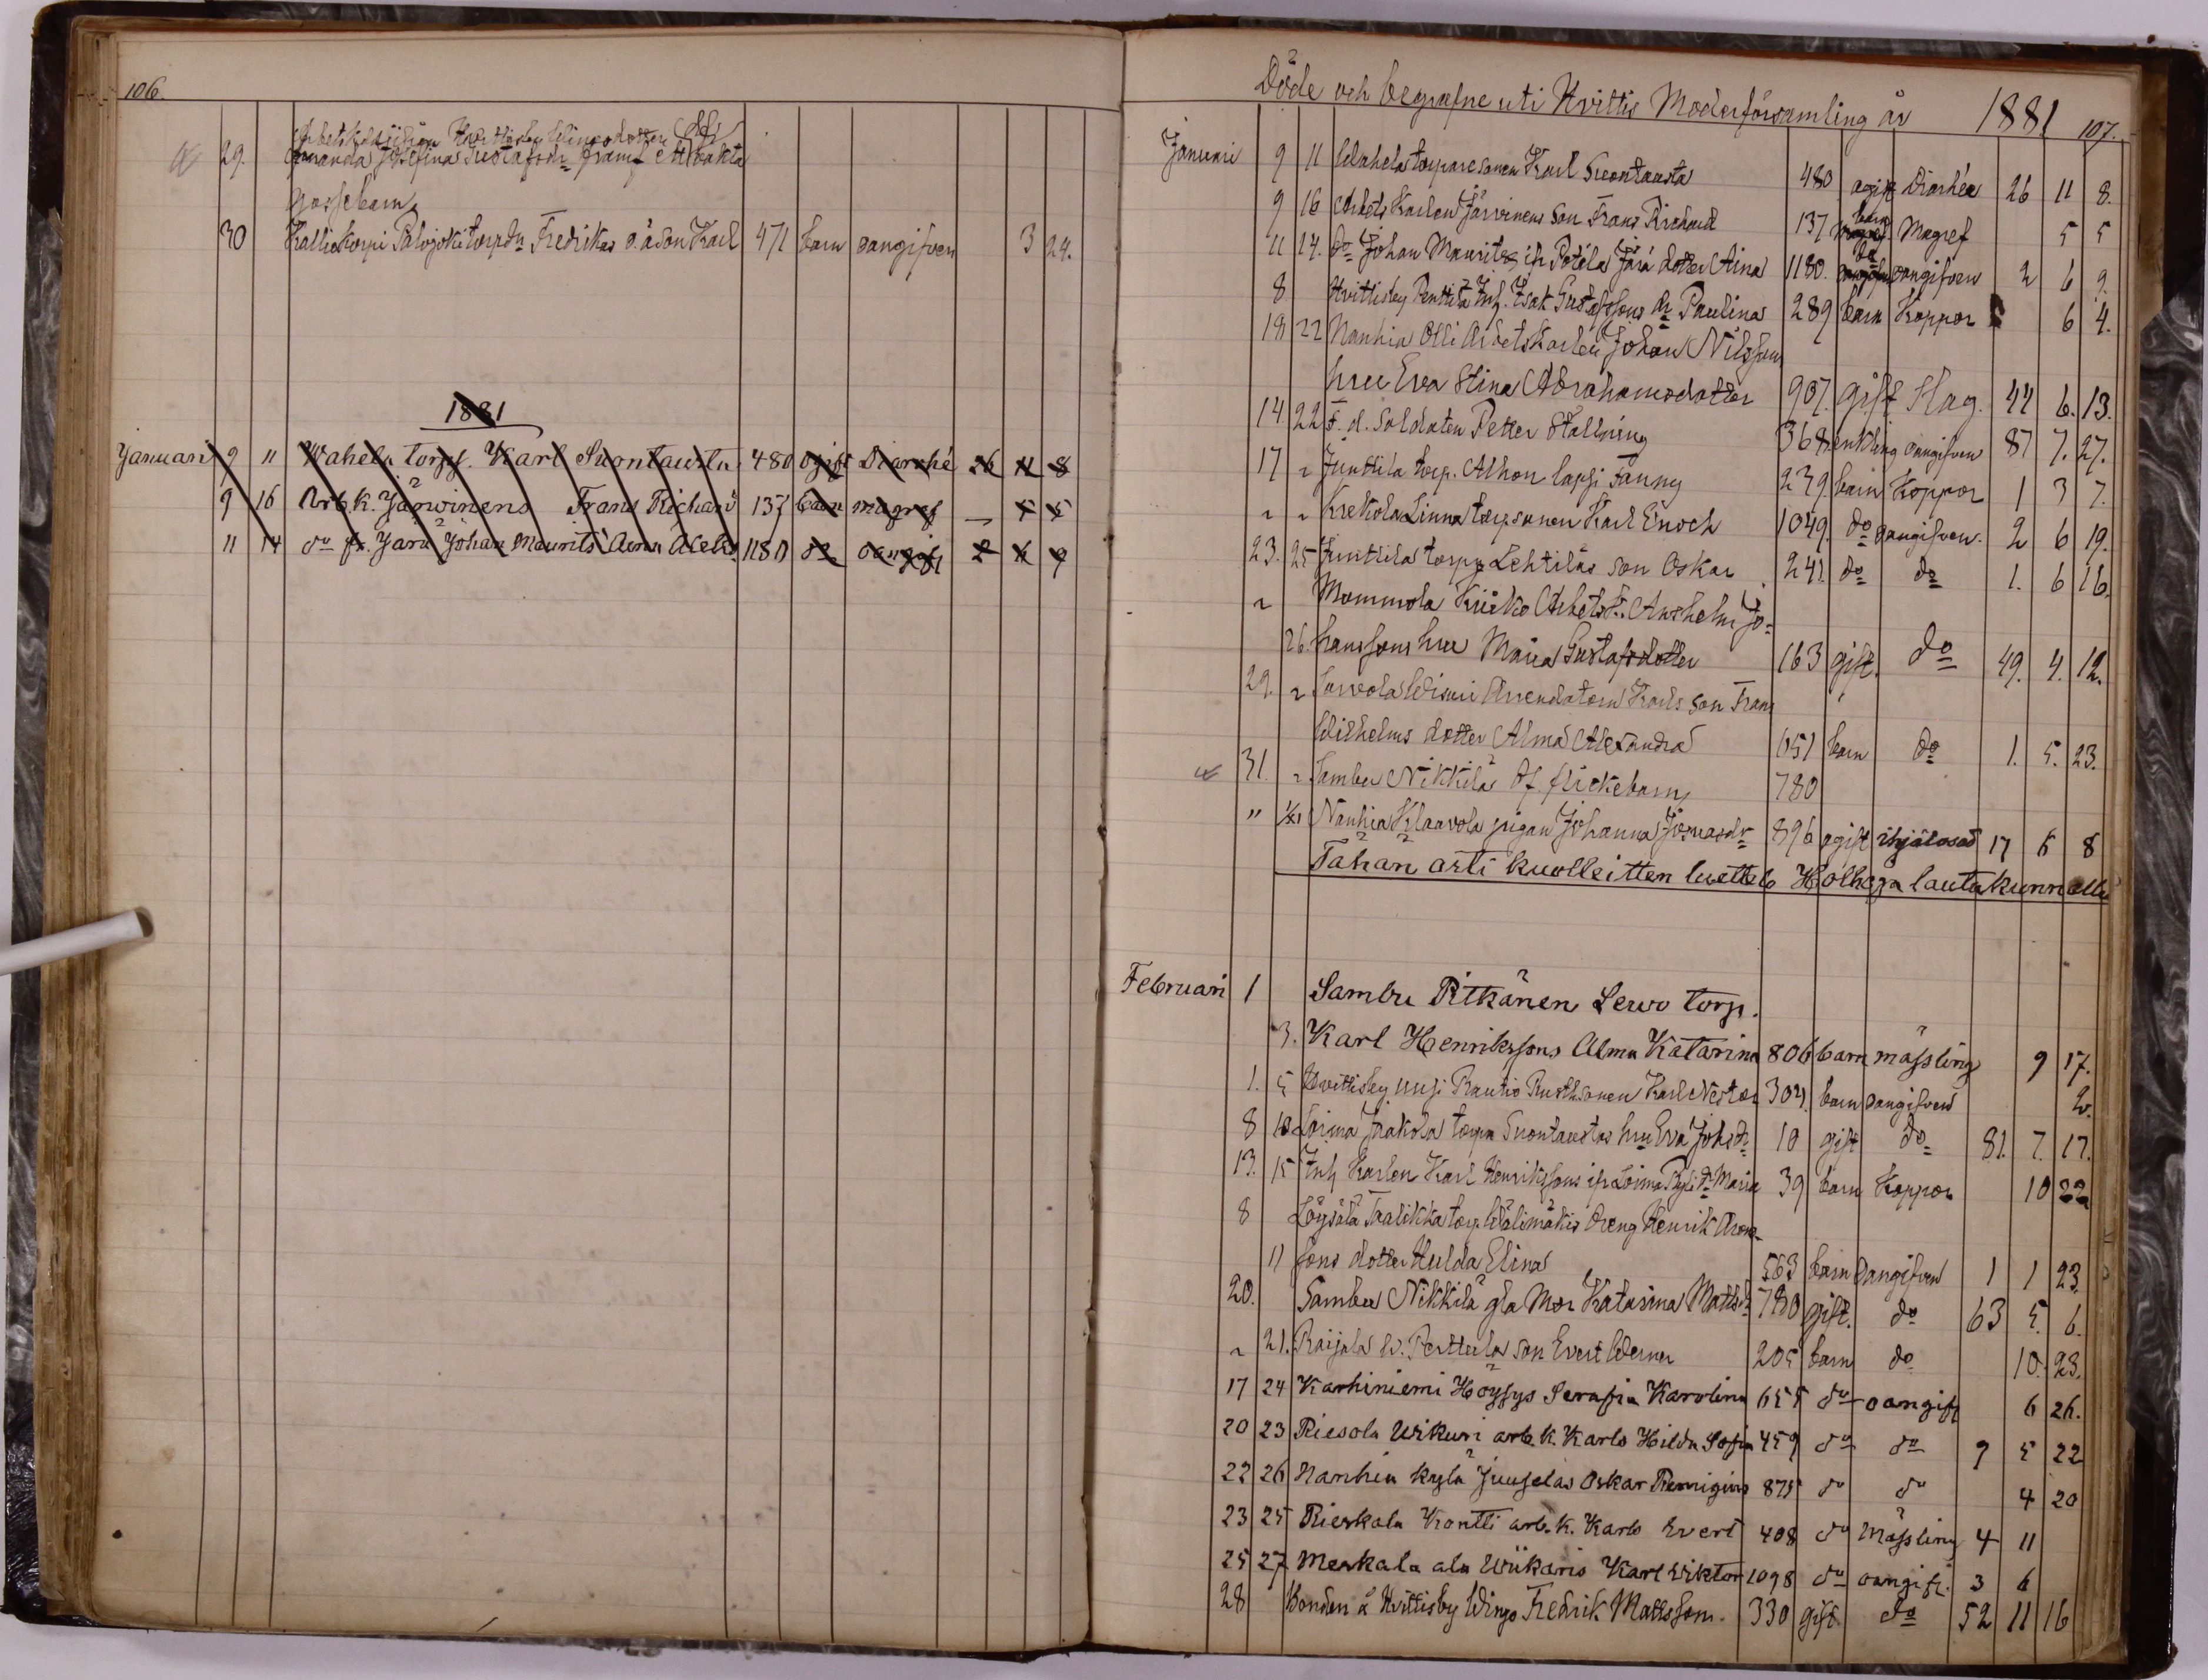 106.
29. Amanda Josefina Gustafsdr framf
gossebarn
30 Kalliokorpi torpdr Fredrikas o. ä son Karl 471 barn oangifven 3 24.
1881
Januari 9 11 Wahela torpf. Karl Suontausta 480 ogift Diarrhé 26 11 8
9 16 Arb.k. Järwinens Frans Richard 137 barn magref — 5 5
11 14 do fr. Jara Johan Maurits Aina 1180 do oangifv 2 6 9
Döde och begrafne uti Hvittis Moderförsamling år 1881 107.
Januari 9 11 Wahela torparesonen Karl Suontausta 480 ogift Diarhéa 26 11 8.
9 16 Arbets Karlen Järvinens Son Frans Richard 137 barn Magref 5 5
11 14. do Johan Maurits Jara dotter Aina 1180. do oangifven 2 6 9.
8 Hvittisby Penttilä Inh. Isak Gustafssons dr Paulina 289 barn Koppor 6 4.
18 22 Nanhia Olli Arbetskarlen Johan Nilsson
hru Eva Stina Abrahamsdotter 907. gift Slag. 44 6. 13.
14. 22 F. d. Soldaten Petter Stallning 368 enkling oangifven 87 7. 27.
17 " Junttila torp. Alhon lapsi Fanny 239 barn Koppor 1 3 7.
" " Krekola Linna torpsonen Karl Enoch 1049. do oangifven. 2 6 19.
23. 25 Junttila torp Lehtiläs son Oskar 241. do do 1. 6 16.
" Mommola Arbetsk. Anshelm Jo-
26. hanssons hru Maria Gustafsdotter 163 gift. do 49. 4. 12.
29. " Arrendatorn Karls son Frans
Wilhelms dotter Alma Alexandra 651 barn do 1. 5. 23.
31. " Sambu Nikkilä Df. flickebarn 780
" 1/2 Nanhia Klaavola pigan Johanna Josuasdr 896 ogift ihjälosad 17 6 8
Tähän asti kuolleitten luettelo Holhoja lautakunnalle
Februari 1 Sambu Pitkänen Lewo torp.
3. Karl Henrikssons Alma Katarina 806 barn mässling 9 17.
1. 5 Hvittisby Uusi Rautio Rusth.sonen Karl Nestor 304. barn oangifven 2.
8 12 Loima Jaakola torpn Suontaustas hru Eva Johsdr 10 gift do 81. 7. 17.
13. 15 Inh Karlen Karl Henrikssons ifr Loima dr Maria 39 barn Koppor 10 22
8 Löysälä Taalikka torp. Wälimäkis dreng Henrik Arons-
11 sons dotter Hulda Elina 563 barn Oangifven 1 1 23.
20. Sambu Nikkilä gla Mor Katarina Mattsdr 780 gift. do 63 5. 6.
" 21. Raijala W. Perttula son Evert Werner 205 barn do 10. 28.
17 24 Karhiniemi Höysys Serafia Karolina 655 do oangifv 6 26.
20 23 Riesola Wikuri arb.k. Karls Hilda Sofia 459 do do 9 5 22
22 26 Nanhia kylä Juuselas Oskar Remigius 875 do do 4 20
23 25 Rieskala Kontti arb.k. Karls Evert 408 do Mässling 4 11
25 27 Meskala ala Wiikaris Karl Wiktor 1098 do oangif. 3 6
28 Bonden å Hvittisby Wingo Fredrik Mattsson. 330 gift. do 52 11 16